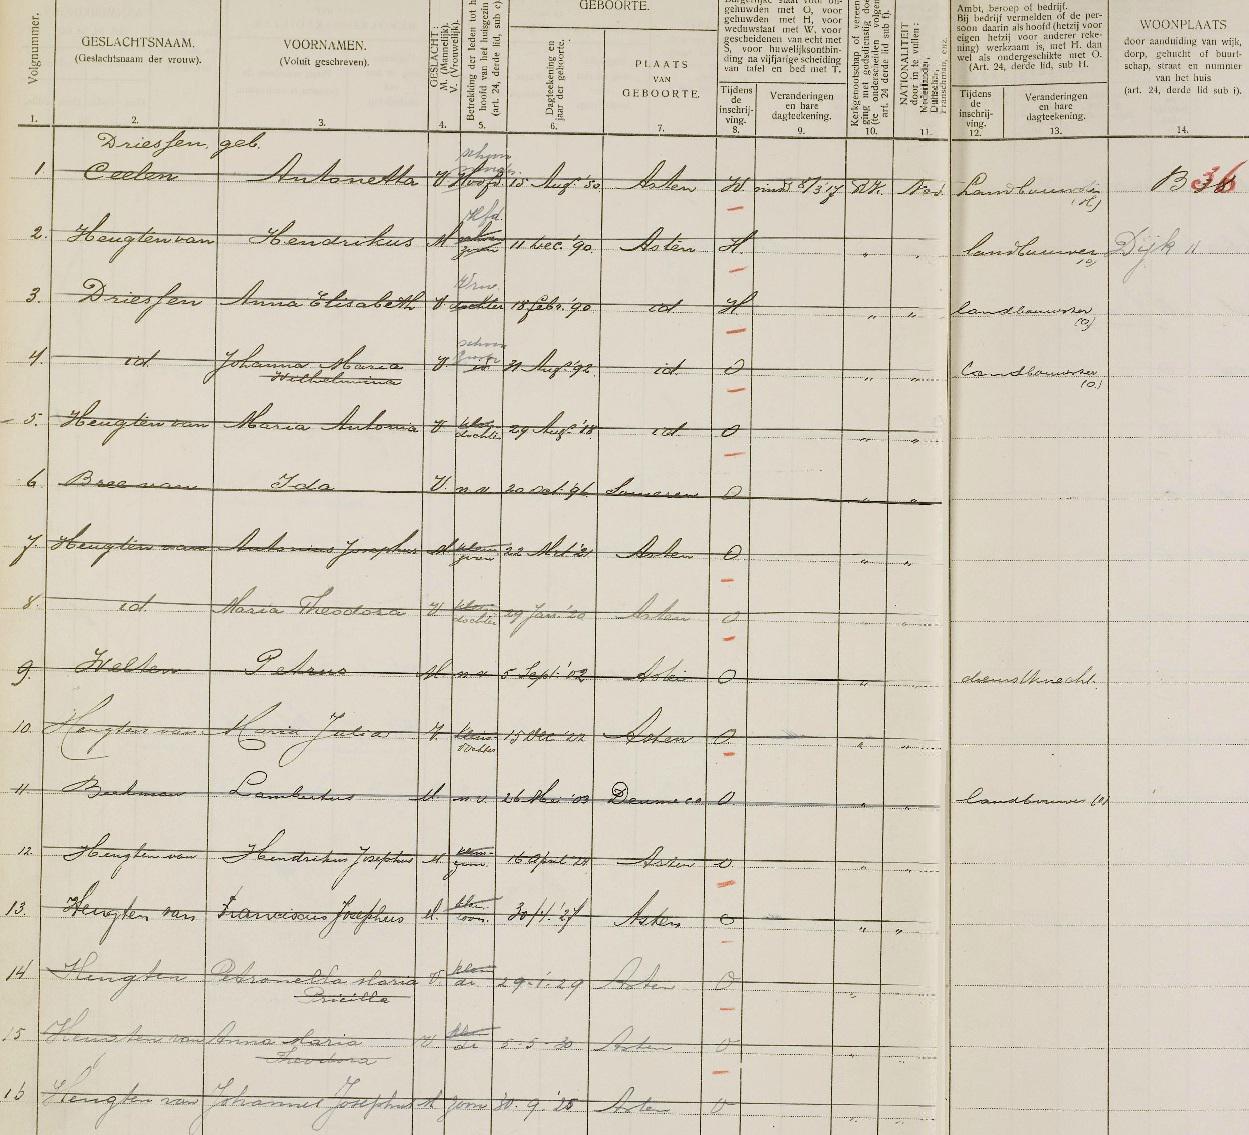 GEBOORTE.
Volgnummer.
GESLACHTSNAAM.
(Geslachtsnaam der vrouw).
VOORNAMEN.
(Voluit geschreven).
GESLACHT.
M. (Mannelijk).
V. (Vrouwelijk).
Betrekking der leden tot h
hoofd van het huisgezin
(art. 24, derde lid, sub c).
Dagteekening en
jaar der geboorte.
PLAATS
VAN
GEBOORTE.
gehuwden met O, voor
gehuwden met H, voor
weduwstaat met W, voor
gescheidenen van echt met
S, voor huwelijksontbin-
ding na vijfjarige scheiding
van tafel en bed met T.
Tijdens
de
inschrij-
ving.
Veranderingen
en hare
dagteekening.
Kerkgenootschap of vereen
ging met godsdienstig doe
(te onderscheiden volgen
art. 24 derde lid sub f).
NATIONALITEIT
door in te vullen:
Nederlandsch,
Duitsche,
Franschman, enz.
Ambt, beroep of bedrijf.
Bij bedrijf vermelden of de per-
soon daarin als hoofd (hetzij voor
eigen hetzij voor anderer reke-
ning) werkzaam is, met H. dan
wel als ondergeschikte met O.
(Art. 24, derde lid, sub H.
Tijdens
de
inschrij-
ving.
Veranderingen
en hare
dagteekening.
WOONPLAATS
door aanduiding van wijk,
dorp, gehucht of buurt-
schap, straat en nummer
van het huis
(art. 24, derde lid sub i).
1. 2. 3. 4. 5. 6. 7. 8. 9. 10. 11. 12. 13. 14.
Driessen, geb.
schoon
1 Ceelen Antonetta V Hoofd 15 Aug. '50 Asten W. 8/3'17 R.K. Ned. Landbouwster (H) B 36
Hfd.
2. Heugten van Hendrikus M zoon 11 Dec. '90 Asten H. " " landbouwer (O) Dijk 11
Vrw.
3. Driessen Anna Elisabeth V. dochter 18 Febr. '90 id H " " landbouwster (O)
schoon
4. id. Johanna Maria V. id 31 Aug. '92 id. O " " Landbouwster (O.)
Wilhelmina
5. Heugten van Maria Antonia V klein dochter 29 Aug. '18 id O " "
6 Bree van Ida V. n v 20 Oct. '96 Someren O " "
7. Heugten van Antonius Josephus M klein zoon 22 Mrt '21 Asten O " "
8. id. Maria Theodora V. klein dochter 29 Jan. '20 Asten O " "
9. Welten Petrus M n v 5 Sept. '02 Asten O " " dienstknecht.
10. Heugten van Maria Julia V. klein dochter 15 Dec '22 Asten O. " "
11. Beekman Lambertus M n v. 26 '03 Deurne ca O " " landbouwer (O)
12. Heugten van Hendrikus Josephus M. klein zoon. 16 April '24 Asten O " "
13. Heugten van Franciscus Josephus M. klein zoon. 30/4.'27 Asten O " "
14 Heugten Petronella Maria V. klein dr. 29-1-29 Asten O "
Pricilla
15 Heugten van Anna Maria V klein dr 5-5-30 Asten O "
Theodora
16 Heugten van Johannes Josephus M zoon 30. 9.'25 Asten O "